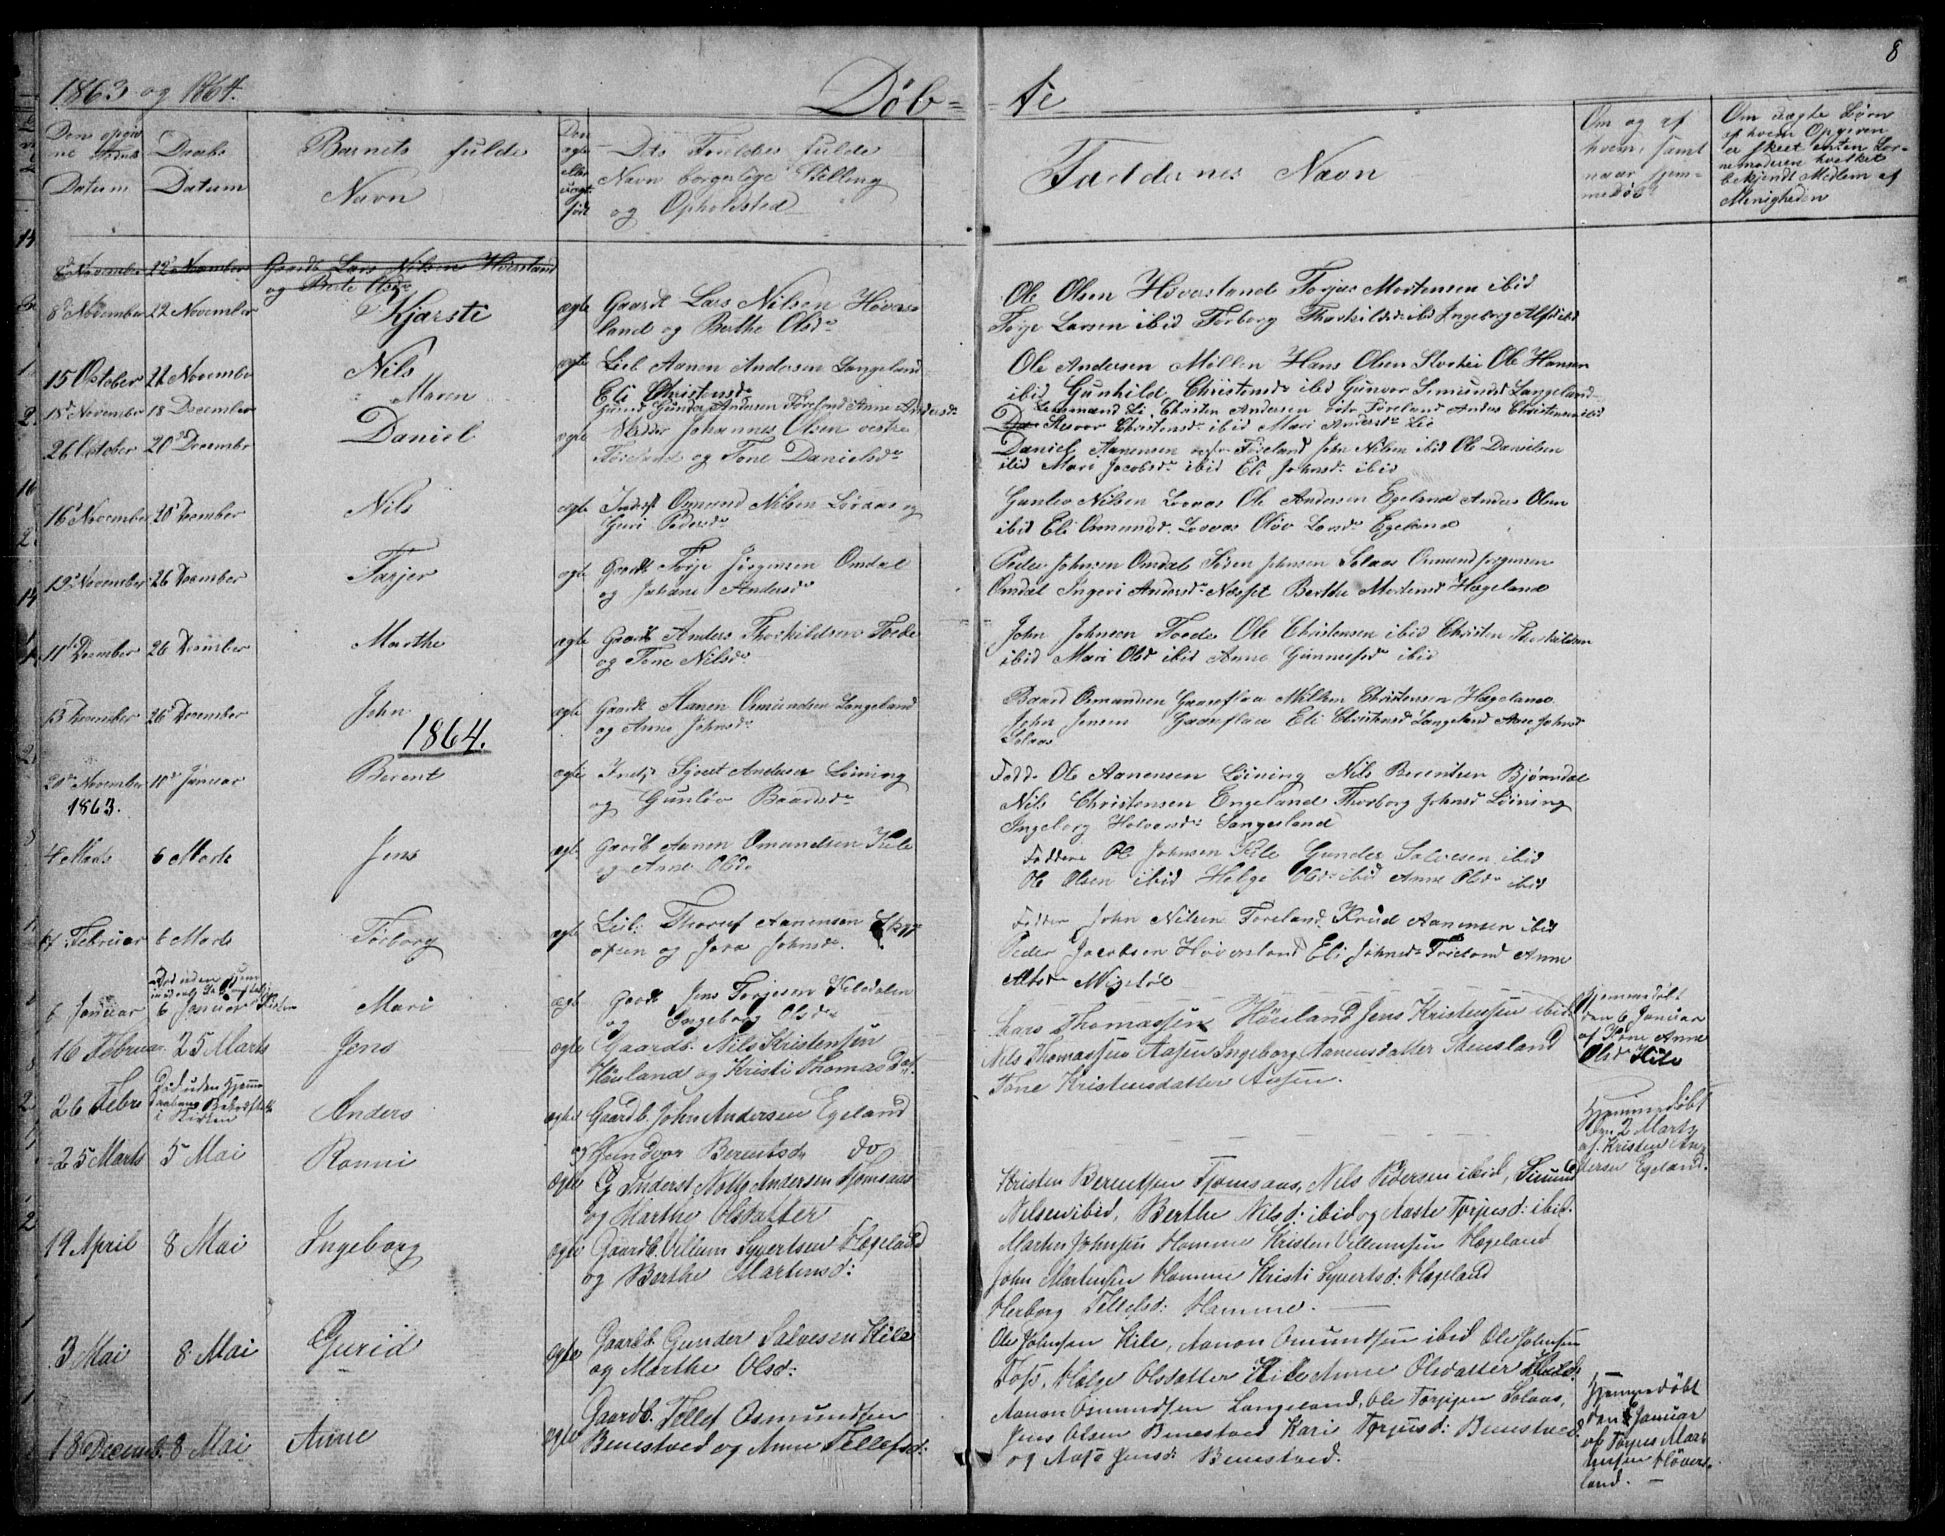 8
1863 og 1864.
Døb= te
Den opgiv
ne Fødsels
Datum
Daabs
Datum
Barnets fulde
Navn
Den
ægte
eller
uægte
født
Dets Forældres fulde
Navn borgerlige Stilling
og Opholdsted
Faddernes Navn
Om og af
hvem, samt
naar hjem-
medøbt
Om uægte Børn
af hvem Opgiven
er skeet enten Bar-
nemoderen hvilket
bekjendt Medlem af
Menigheden
8de November 22de November Gaardb Lars Nilsen Høversland
og Berte Olsdr
8de November 22 November Kjersti ægte Gaardb Lars Nilsen Høvers-
land og Berthe Olsdr
Ole Olsen Høversland Torjus Mortensen ibid
Torje Larsen ibid Torborg Thorkildsdr ibid Ingeborg Alfsd ibid
15 Octover 22 November Nils ægte Leil Aanen Andersen Langeland
Eli Christensdr
Ole Andersen Møllen Hans Olsen Ole Hansen
ibid Gunhild Christensdr ibid Gunvor Simundsd Langeland
18de November 18 December Maren Gunder Andersen Føreland Anne Andersdr
Lensmand Lie Christen Andersen Føreland Anders Christensen ibid
Christensdr ibid Mari Andersdr Lie
26 Octover 20de December Daniel ægte Johannes Olsen vestre
Føreland og Tone Danielsdr
Daniel Aanensen Føreland John Nilsen ibid Ole Danielsen
ibid Mari Jacobsdr ibid Eli Johnsdr ibid
16de November 20de December Nils ægte Inderst Osmund Nilsen Løvaas og
Guri Pedersdr
Gunlev Nilsen Løvaas Ole Andersen Egeland Anders Olsen
ibid Eli Osmundsd Løvaas Oløv Larsdr Egeland
19de November 26 December Tarjer ægte Gaardb Torje Jørgensen Omdal
og Johane Andersdr
Peder Johnsen Omdal Søren Johnsen Solaas Osmund Jørgensen
Omdal Ingeri Andersdr Næsset Berthe Mortensd Hægeland
11de December 26 December Marthe ægte Gaardb Anders Thorkildsen Foede
og Tone Nilsdr
John Johnsen Foede Ole Christensen ibid Christen Thorkildsen
ibid Mari Olsd ibid Anne Gunnufsdr ibid
13 December 26 December John ægte Gaardb Aanen Osmundsen Langeland
og Anne Johnsdr
Baard Osmundsen Gaaseflaa Christensen Hægeland
John Jensen Gaaseflaa Eli Christensd Langeland Ane Johnsd
Solaas
1864.
20de November 10de Januar Berent ægte Syvert Andersen Løining
og Gunløv Baardsdr
1863.
Fadd: Ole Aanensen Løining Nils Berentsen Bjørndal
Nils Christensen Engeland Thorborg Johnsd Løining
Ingeborg Halvorsdr Langeland
4 Marts 6 Marts Jens ægte Gaardb Aanen Osmundsen Kile
og Anne Olsdr
Faddere Ole Johnsen Kile Gunder Salvesen ibid
Ole Olsen ibid Helge Olsdr ibid Anne Olsdr ibid
Februar 6 Marts Torborg ægte Leil: Aanensen
og Johnsdr.
Fadder John Nilsen Føreland Knud Aanensen ibid
Peder Jacobsen Høversland Eli Johnsdr Føreland Anne
6 Januar 6 Januar Mari ægte Gaardb Jens Torjesen Kiledalen
og Ingeborg Olsdr
Hjemmedøbt
den 6 Januar
af Kone Anne
Olsdr Kile
16 Februar 25 Marts Jens ægte Gaardb. Nils Kristensen
Houland og Kristi Thomas Dat.
Lars Thomassen Houland Jens Kristensen ibid:
Nils Thomassen Aasen Ingeborg Aanensdatter Stensland
Tone Kristensdatter Aasen.
26 Febr Død uden Hjemme
i Kirken Anders ægte Gaardb. John Andersen Egeland
og Gundvor Berentsdr do
Hjemmedøbt
den 2 Marts
af Kristen An-
dersen Egeland.
25 Marts 5 Mai Ronni ægte Inderst Andersen Fjomsaas
og Marthe Olsdatter
Kristen Berentsen Fjomsaas, Nils Pedersen ibid, Simund
Nilsen ibid, Berthe Nilsd: ibid og Aaste Torjusd: ibid.
19 April 8 Mai Ingeborg ægte Gaardb. Villum Syvertsen Hægeland
og Berthe Martensd:
Marten Johnsen Homme Kristen Villumsen Hægeland
John Martensen Homme Kristi Syvertsd: Hægeland
Herborg Tellefsd: Homme.
3 Mai 8 Mai Gurid ægte Gaardb. Gunder Salvesen Kile
og Marthe Olsd:
Ole Johnsen Kile, Aanon Osmundsen ibid Ole Johnsen
Foss, Helge Olsdatter Kile Anne Olsdatter
18 Decemb. 8 Mai Anne ægte Gaardb. Tellef Osmundsen
Benestved og Anne Tellefsd:
Aanon Osmundsen Langeland, Ole Torjesen Solaas,
Jens Olsen Benestved Kari Torjusd: Benestved
og Aase Jensd: Benestved.
Hjemmedøbt
den 6 Januar
af Torjus Mart-
ensen Høvers-
land.